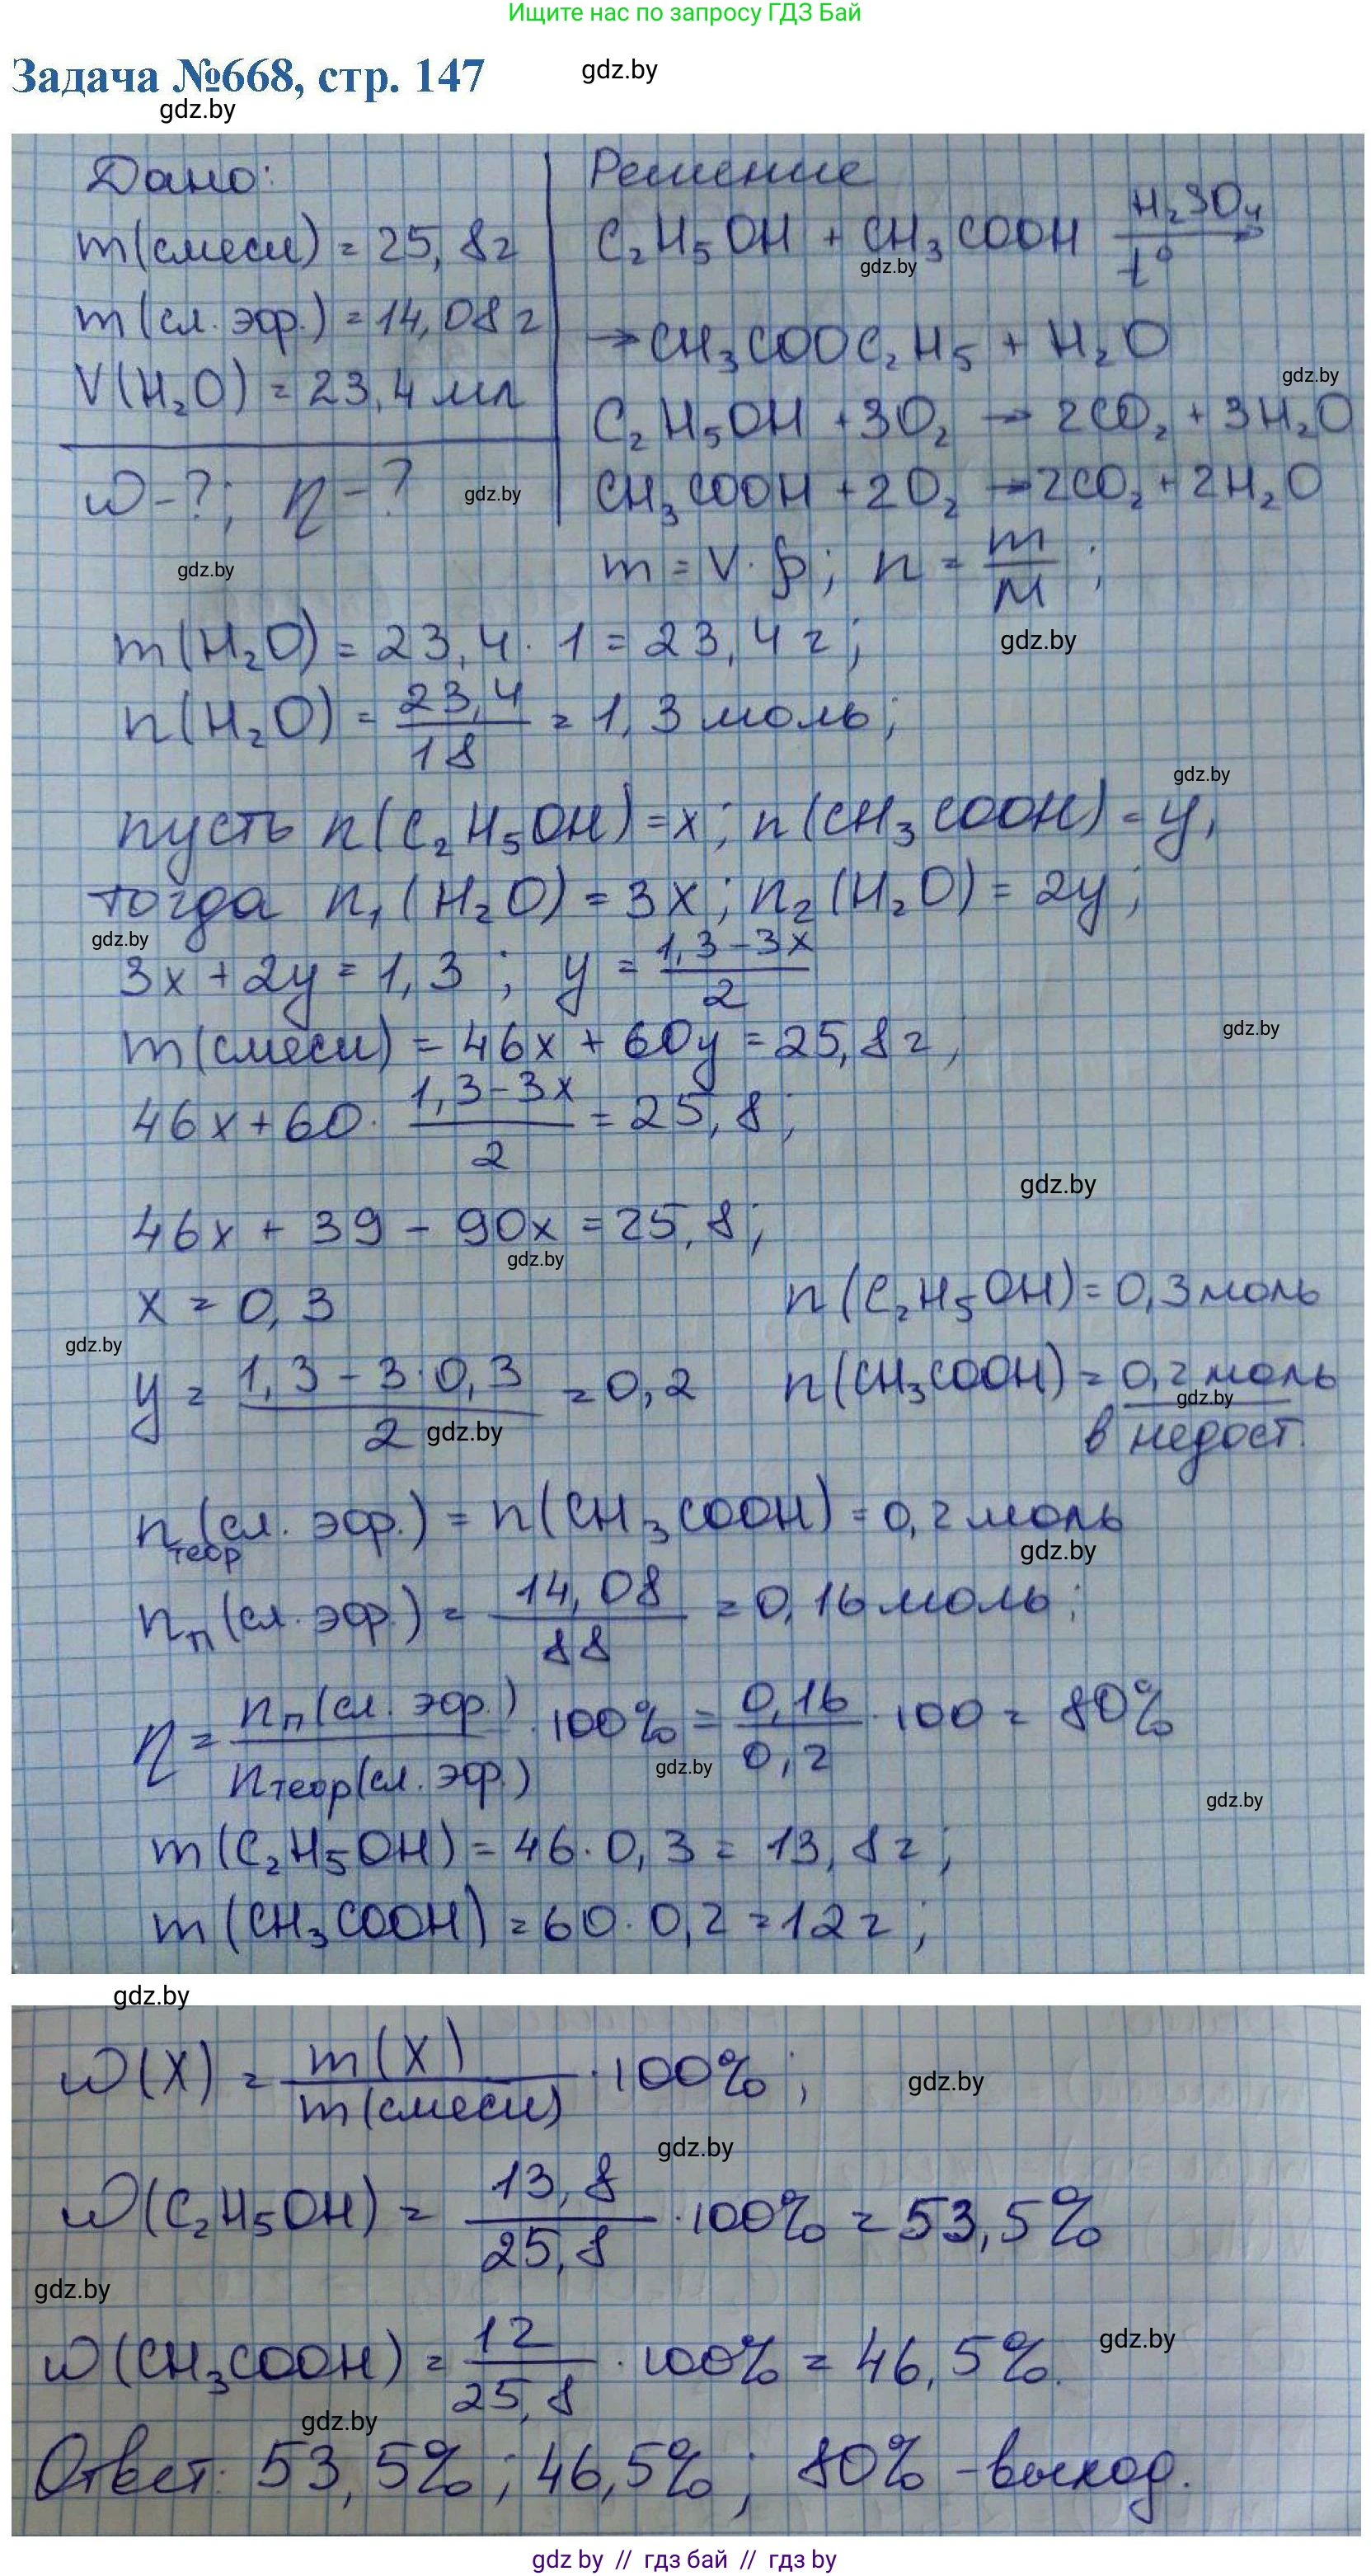 Ищите нас по запросу ГДЗ Бай
Задача №668, стр. 147
gdz.by
gdz.by
Дано:
m(смеси) = 25,8г
m(сл. эфр.) = 14,08г
V(H₂O) = 23,4 мл
ω-?; η-?
gdz.by
gdz.by
Решение
C₂H₅OH + CH₃COOH H₂SO₄ t° →
gdz.by
→ CH₃COOC₂H₅ + H₂O
gdz.by
C₂H₅OH + 3O₂ → 2CO₂ + 3H₂O
CH₃COOH + 2O₂ → 2CO₂ + 2H₂O
m = V·ρ; n = m/M;
gdz.by
m(H₂O) = 23,4 · 1 = 23,4 г;
n(H₂O) = 23,4/18 = 1,3 моль;
gdz.by
пусть n(C₂H₅OH) = x; n(CH₃COOH) = y,
тогда n₁(H₂O) = 3x; n₂(H₂O) = 2y;
gdz.by
3x + 2y = 1,3; y = (1,3-3x)/2
m(смеси) = 46x + 60y = 25,8г;
gdz.by
46x + 60· (1,3-3x)/2 = 25,8;
gdz.by
46x + 39 - 90x = 25,8;
gdz.by
x = 0,3 n(C₂H₅OH) = 0,3 моль
gdz.by
y = (1,3-3·0,3)/2 = 0,2 n(CH₃COOH) = 0,2 моль
gdz.by
gdz.by
в недост.
n теор (сл. эфр.) = n(CH₃COOH) = 0,2 моль
gdz.by
nп(сл. эфр.) = 14,08/88 = 0,16 моль;
η = nп(сл. эфр.)/nтеор(сл. эфр.) · 100% = 0,16/0,2 · 100 = 80%
gdz.by
gdz.by
m(C₂H₅OH) = 46·0,3 = 13,8г;
m(CH₃COOH) = 60·0,2 = 12г;
gdz.by
ω(X) = m(X)/m(смеси) · 100%;
gdz.by
gdz.by
ω(C₂H₅OH) = 13,8/25,8 · 100% = 53,5%
gdz.by
ω(CH₃COOH) = 12/25,8 · 100% = 46,5%.
gdz.by
gdz.by
Ответ: 53,5%; 46,5%; 80% - выход.
gdz by // гдз бай // гдз by